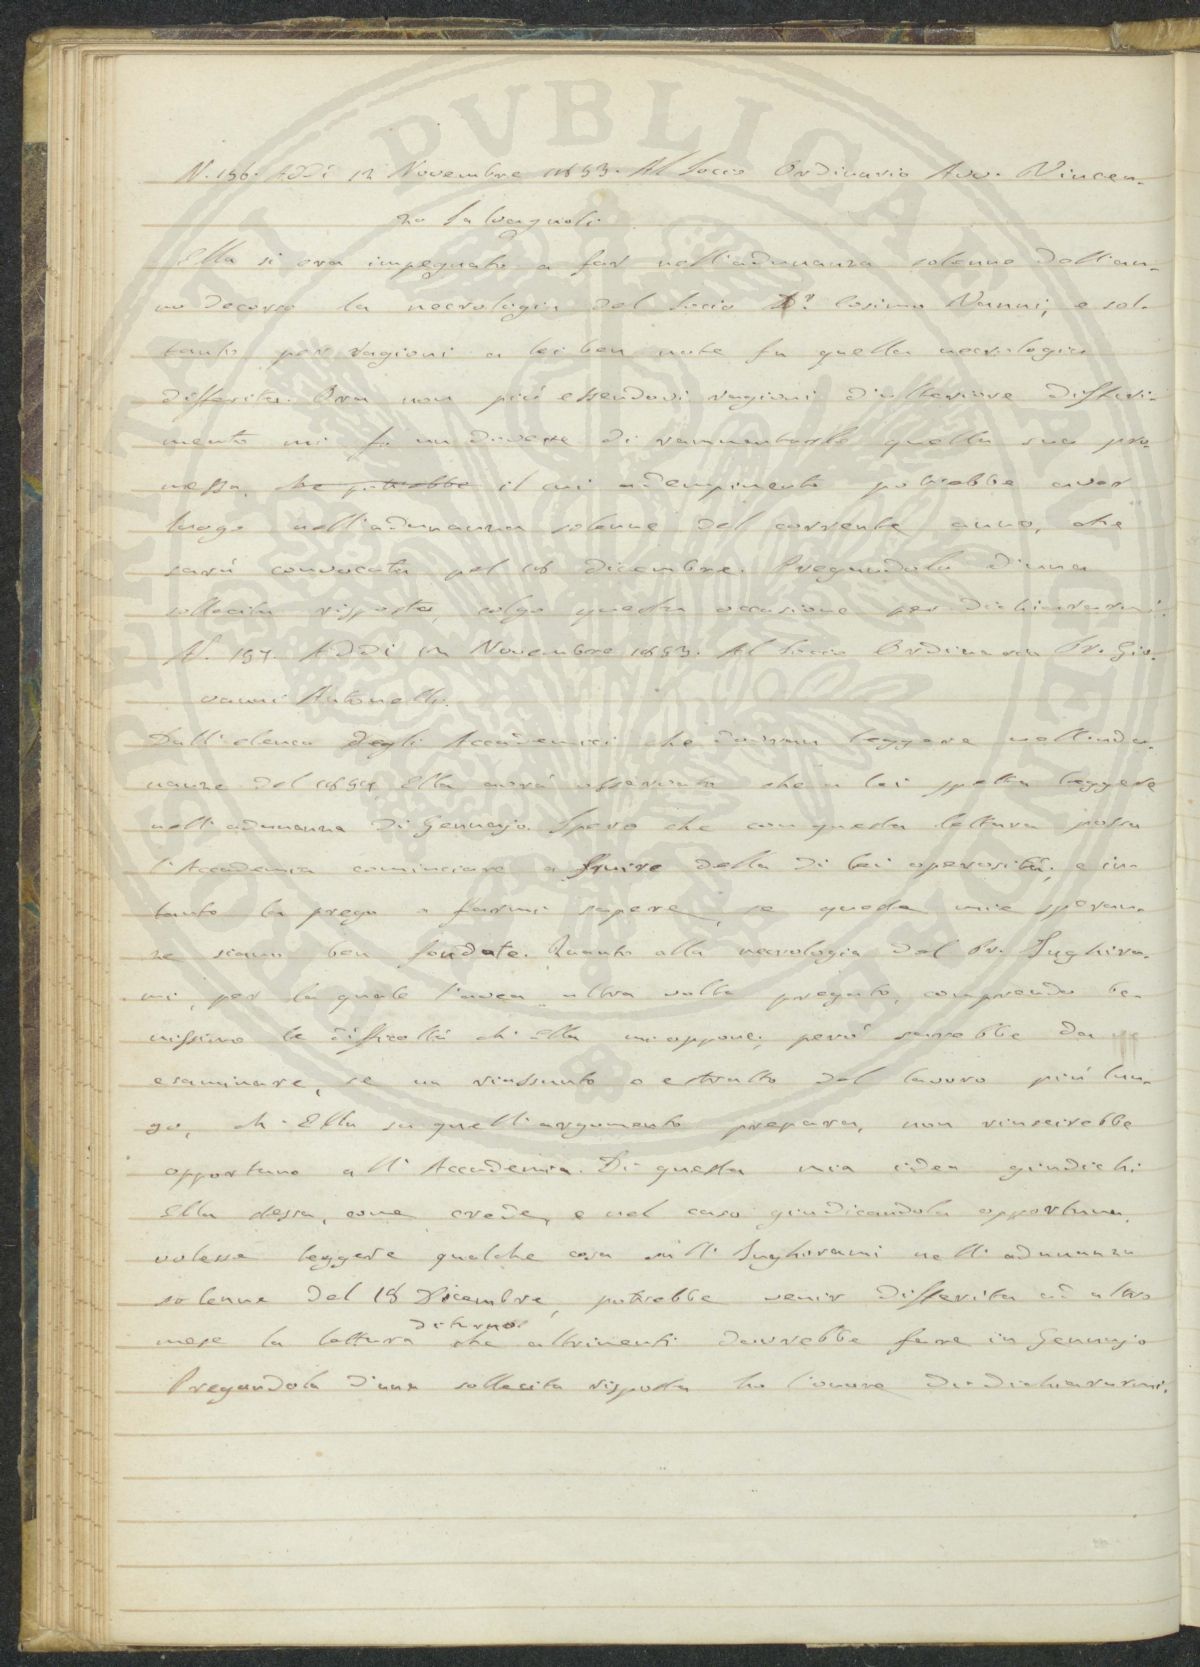 N. 156. Addì 12 Novembre 1853. Al Socio Ordinario Avv. Vincen-
zo Salvagnoli.
Ella si era impegnato a far nell'adunanza solenne dell'an-
no decorso la necrologia del Socio Dr. Cosimo Vanni, e sol-
tanto per ragioni a lei ben note fu quella necrologia
differita. Ora non più essendovi ragioni d'ulteriore differi-
mento mi fo un dovere di rammentarle quella sua pro-
messa, che potrebbe il cui adempimento potrebbe aver
luogo nell'adunanza solenne del corrente anno, che
sarà convocata pel 18 dicembre. Pregandola d'una
sollecita risposta, colgo questa occasione per dichiararmi.
N. 157. Addì 12 Novembre 1853. Al Socio Ordinario Pr. Gio-
vanni Antonelli.
Dall'elenco degli Accademici che dovranno leggere nell'adu-
nanze del 1854 Ella avrà osservato che a lei spetta leggere
nell'adunanza di Gennajo. Spero che con questa lettura possa
l'Accademia cominciare a fruire della di lei operosità; e in-
tanto la prego a farmi sapere, se queste mie speran-
ze siano ben fondate. Quanto alla necrologia del Pr. Inghira-
mi, per la quale l'avea altra volta pregato, comprendo be-
nissimo le difficoltà ch'Ella mi oppone; però sarebbe da
esaminare, se un riassunto o estratto del lavoro più lun-
go, ch'Ella su quell'argomento prepara, non riuscirebbe
opportuno all'Accademia. Di questa mia idea giudichi
Ella stessa, come crede, e nel caso giudicandola opportuna,
volesse leggere qualche cosa sull'Inghirami nell'adunanza
solenne del 18 Dicembre, potrebbe venir differita ad altro
mese la lettura di turno che altrimenti dovrebbe fare in Gennajo
Pregandola d'una sollecita risposta ho l'onore di dichiararmi.